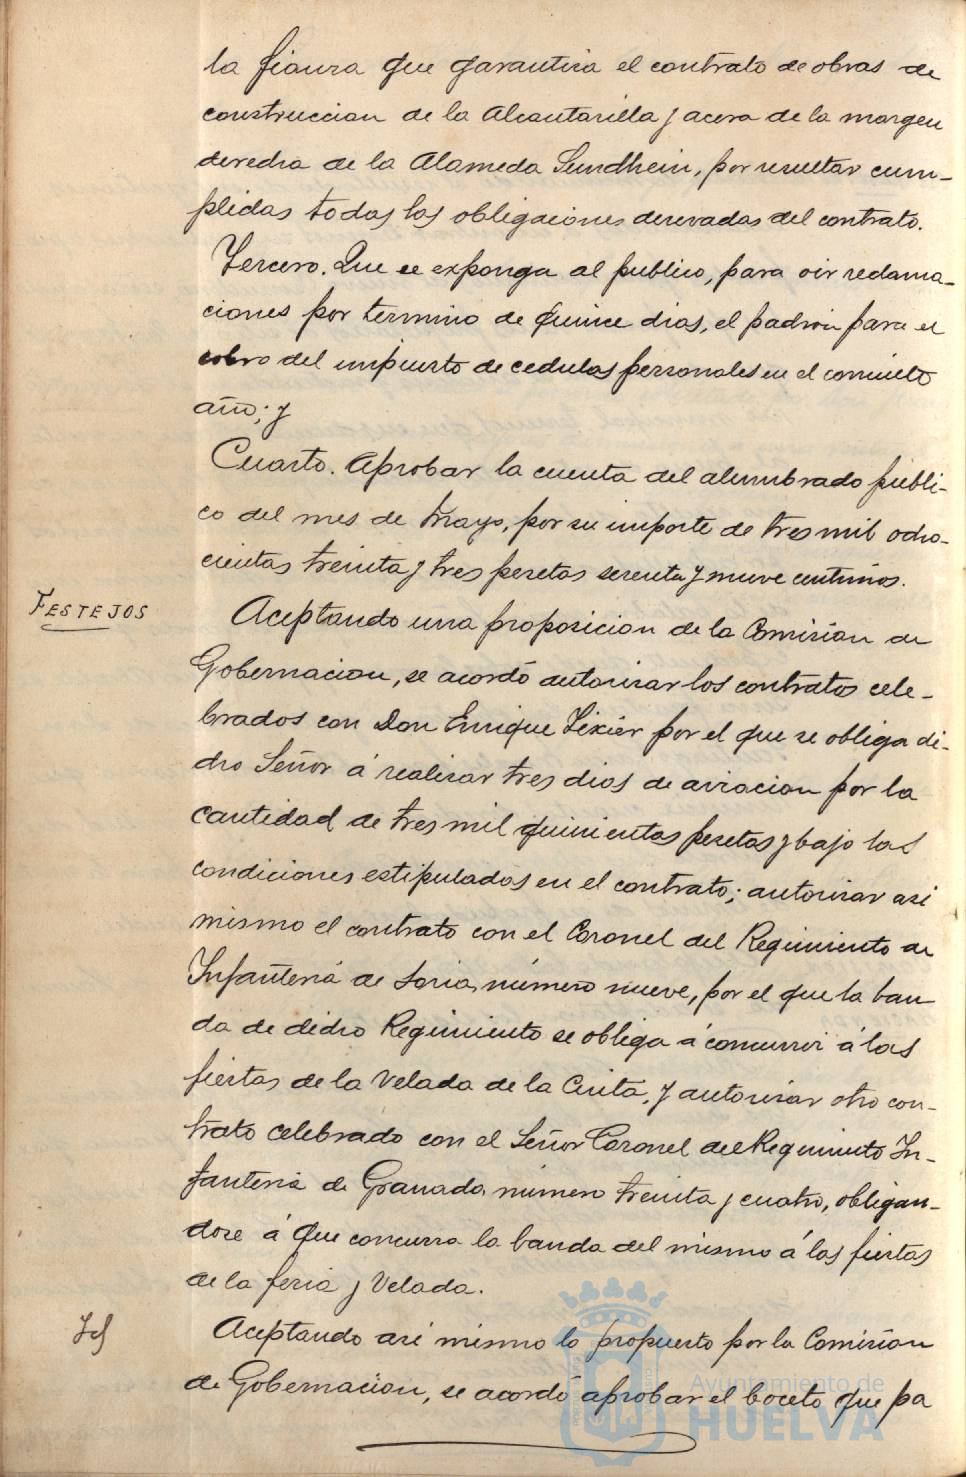 la fianza que garantiza el contrato de obras de
construccion de la Alcantarilla y acera de la margen
derecha de la Alameda Sundhein, por resultar cum-
plidas todas las obligaciones derivadas del contrato.
Tercero. Que se exponga al publico, para oir reclama-
ciones por termino de quince dias, el padrón para el
cobro del impuesto de cedulas personales en el corriente
año; y
Cuarto. Aprobar la cuenta del alumbrado públi-
co del mes de Mayo, por su importe de tres mil ocho-
cientas treinta y tres pesetas sesenta y nueve centimos.
FESTEJOS
Aceptando una proposicion de la Comisión de
Gobernación, se acordó autorizar los contratos cele-
brados con Don Enrique Tixier por el que se obliga di-
cho Señor á realizar tres dias de aviacion por la
cantidad de tres mil quinientas pesetas y bajo las
condiciones estipuladas en el contrato; autorizar asi
mismo el contrato con el Coronel del Regimiento de
Infantería de Soria, número nueve, por el que la ban
da de dicho Regimiento se obliga á concurrir á las
fiestas de la Velada de la Cinta, y autorizar otro con-
trato celebrado con el Señor Coronel del Regimiento In-
fanteria de Granada, número treinta y cuatro, obligan-
dose á que concurra la banda del mismo á las fiestas
de la feria y Velada.
Id
Aceptando asi mismo lo propuesto por la Comisión
de Gobernación, se acordó aprobar el boceto que pa
Ayuntamiento de
HUELVA